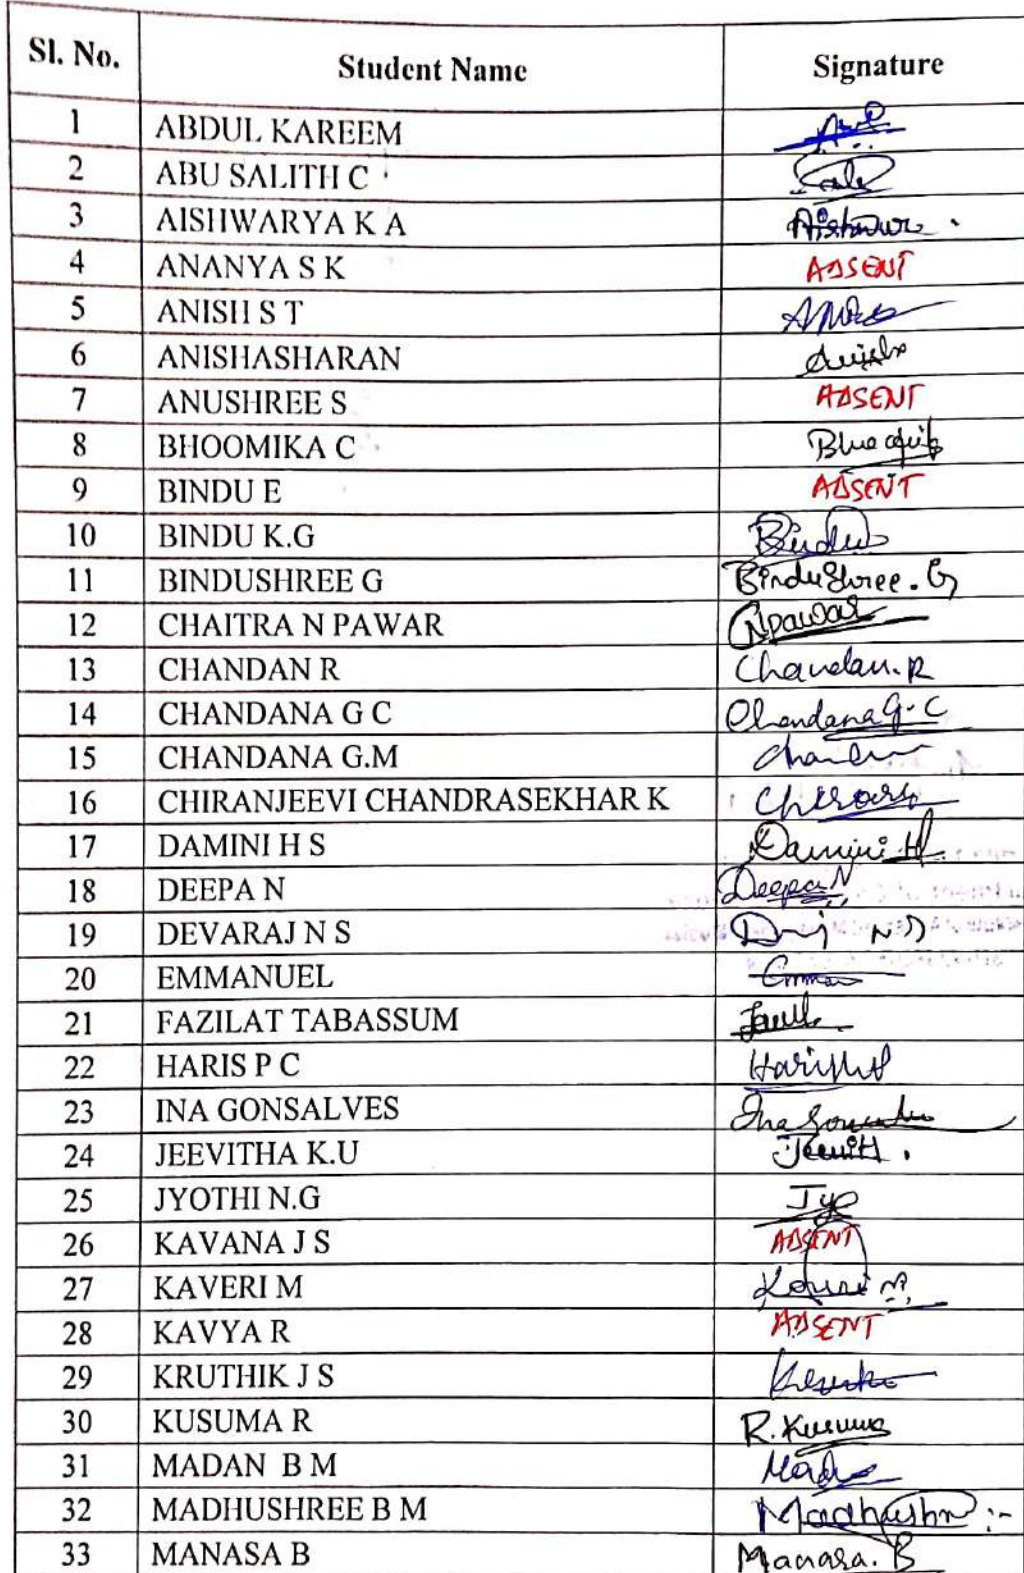 Sl. No. Student Name Signature
1 ABDUL KAREEM
2 ABU SALITH C
3 AISHWARYA K A
4 ANANYA S K ABSENT
5 ANISH S T
6 ANISHASHARAN
7 ANUSHREE S ABSENT
8 BHOOMIKA C
9 BINDU E ABSENT
10 BINDU K.G Bindu
11 BINDUSHREE G BinduShree. G
12 CHAITRA N PAWAR
13 CHANDAN R Chandan. R
14 CHANDANA G C Chandana G. C
15 CHANDANA G.M
16 CHIRANJEEVI CHANDRASEKHAR K
17 DAMINI H S Damini H
18 DEEPA N Deepa N
19 DEVARAJ N S
20 EMMANUEL
21 FAZILAT TABASSUM
22 HARIS P C
23 INA GONSALVES
24 JEEVITHA K.U
25 JYOTHI N.G Jyo
26 KAVANA J S ABSENT
27 KAVERI M
28 KAVYA R ABSENT
29 KRUTHIK J S
30 KUSUMA R R. Kusuma
31 MADAN B M
32 MADHUSHREE B M
33 MANASA B Manasa. B